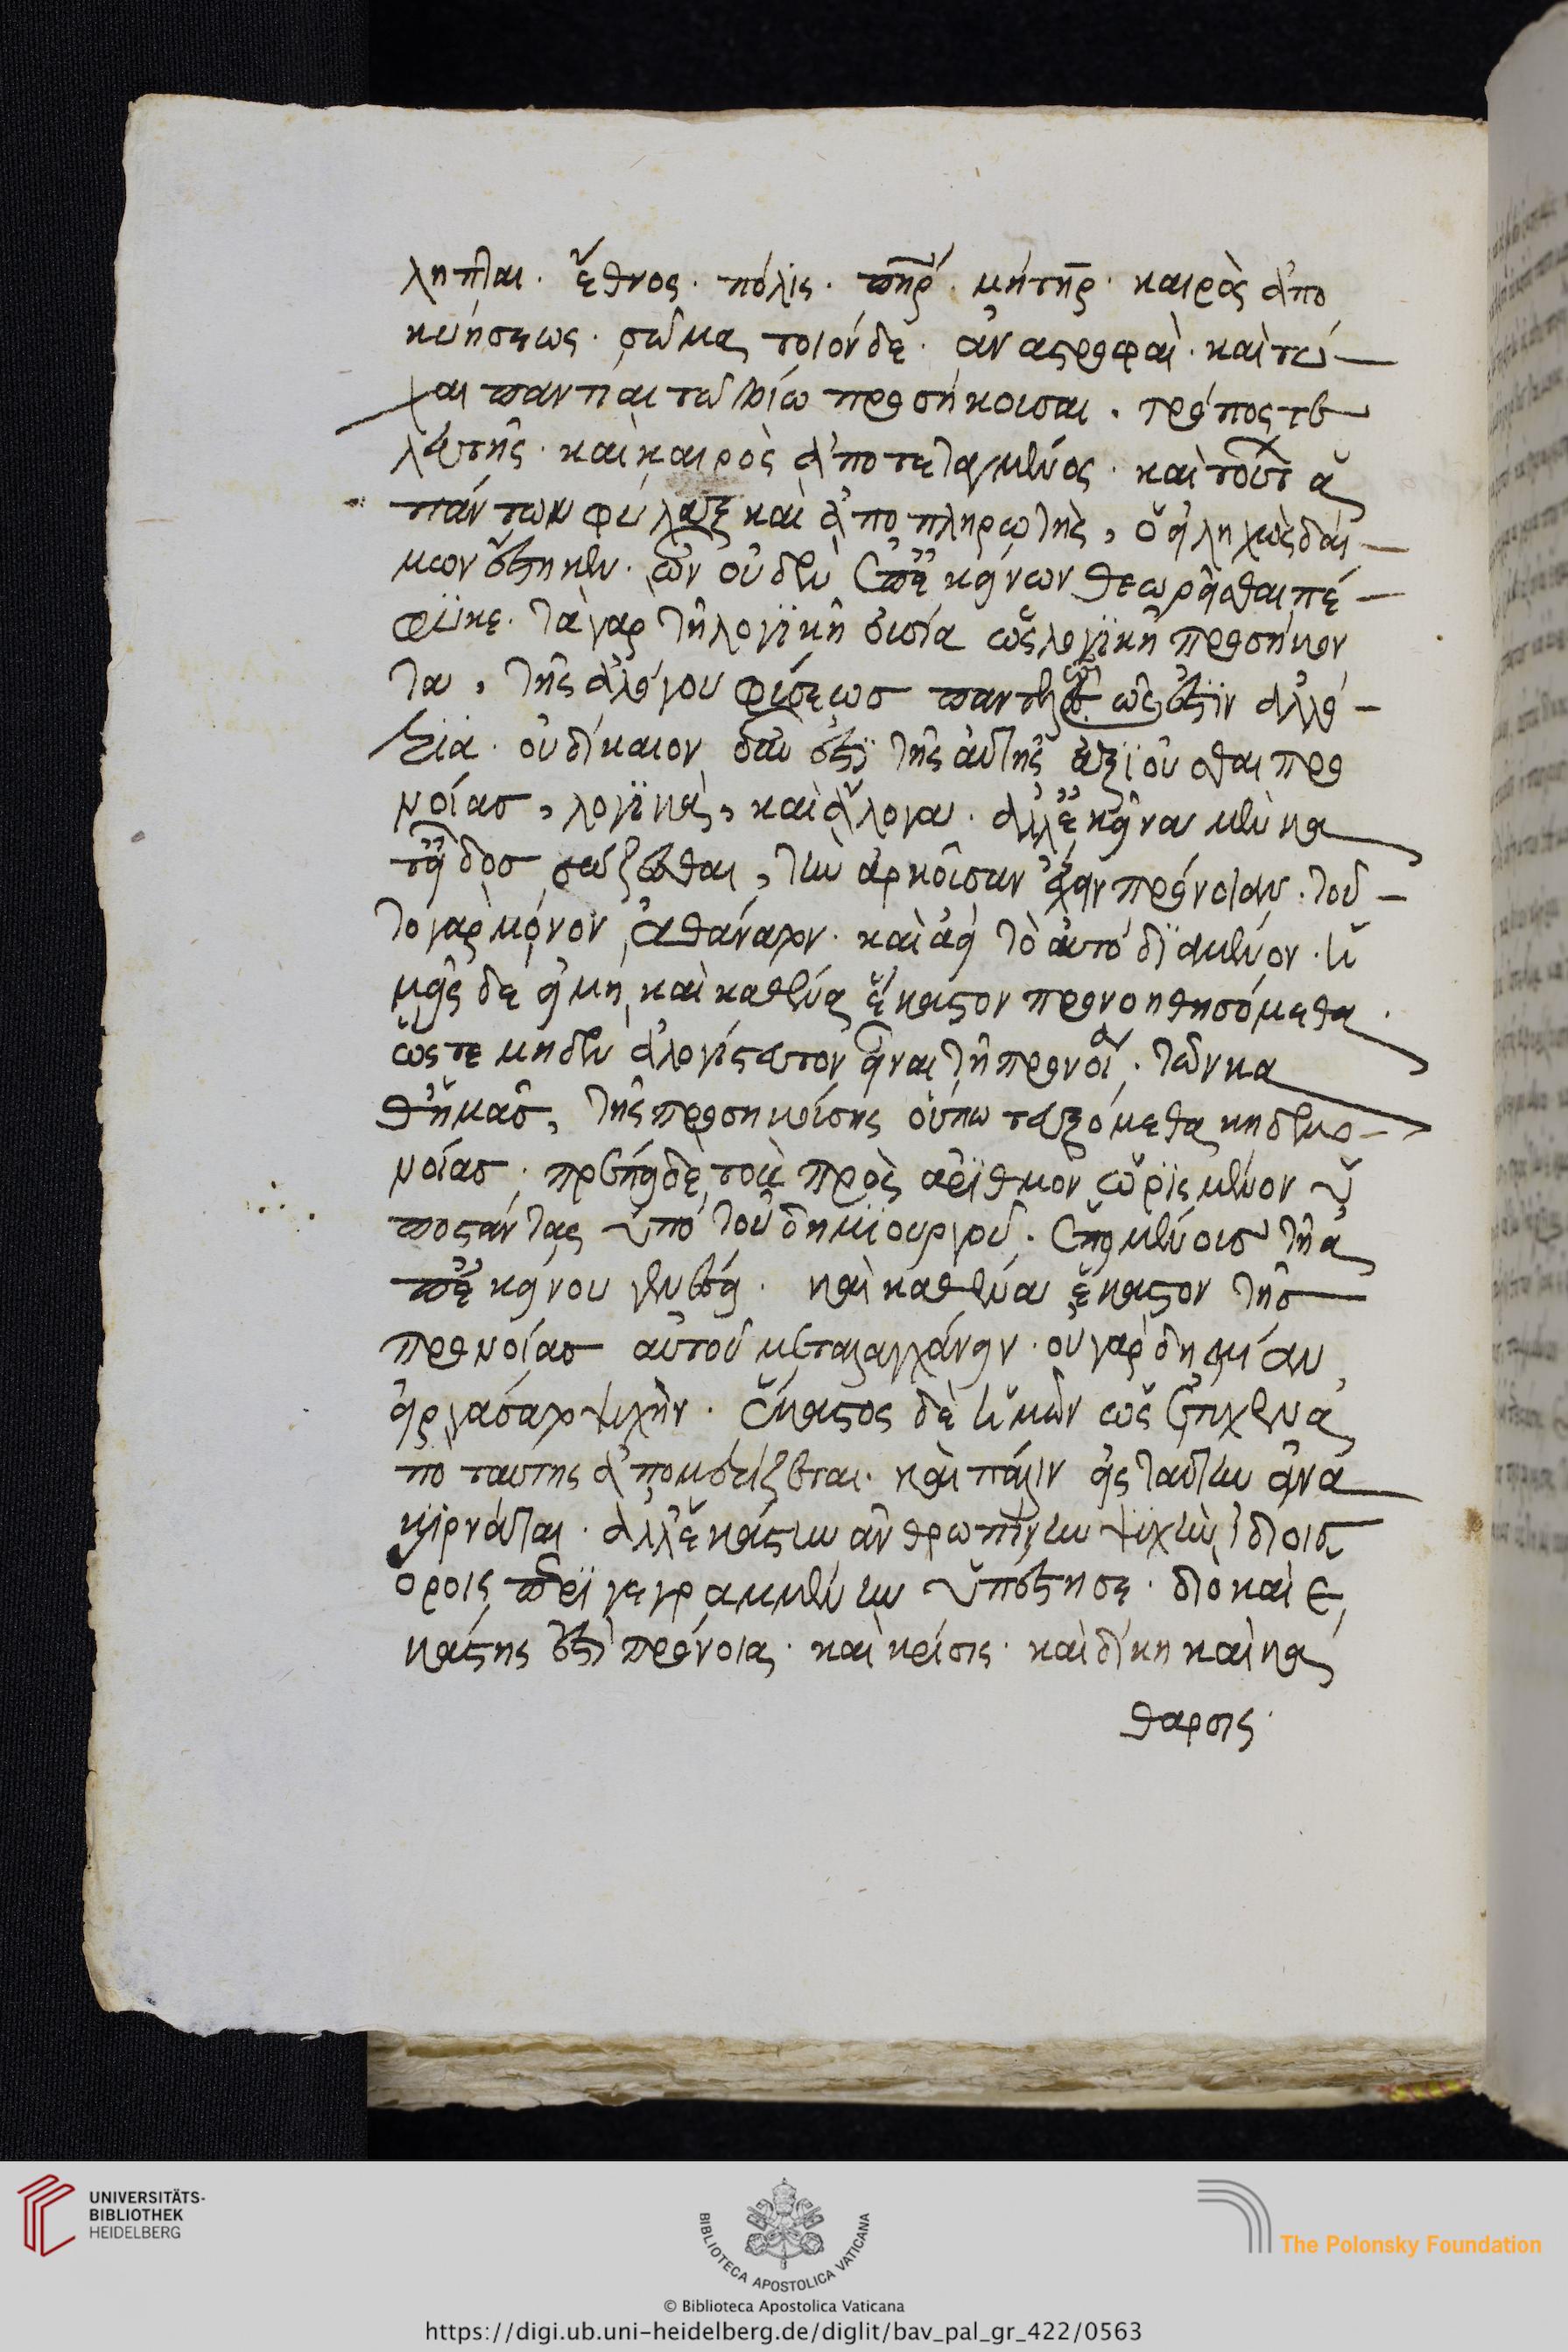 λη πται. ἔθνος. πόλις. πηρ. μήτηρ. καιρὸς ἀπο
κυήσεως. σῶμα τοιόνδε. ἀναστροφαὶ. καὶ τύ
χαι παντίαι τῶ βίω προσήκουσαι. τρόπος τε
λευτῆς. καὶ καιρὸς ἀποτεταγμένος. καὶ τούτ ἁ
πάντων φύλαξ καὶ ἀποπληρωτὴς, ὁ εἰληχὼς δαί
μων ἕστηκεν. ὧν οὐδὲν ἐπ ἐκείνων θεωρεῖσθαι πέ
φυκε. τὰ γαρ τῆ λογικῆ οὐσία ὡς λογικῆ προσήκον
τα, τῆς ἀλόγου φύσεως ἐστὶν ἀλλό
τρια. οὐ δίκαιον τῆς αὐτῆς ἀξιοῦσθαι προ
νοίας, λογικὰ, καὶ ἄλογα. ἀλλ ἐκεῖνα μὲν κα
τ εἶδος σώζεσθαι, τὴν ἀρκοῦσαν ἔχειν πρόνοιαν. τοῦ
το γαρ μόνον ἀθάνατον. καὶ ἀεὶ τὸ αὐτό διαμένον. ἡ
μεῖς δε εἰ μὴ καὶ καθ ἕνα ἕκαστον προνοηθησόμεθα
ὥστε μηδὲν ἀλόγιστον εἶναι τῆ προνοία. τῶν κα
θ ἡμᾶς, τῆς προσηκούσης οὔπω ταξόμεθα κηδεμο
νοίας. πρὸς ἀριθμὸν ὡρισμένον ὑ
ποστάντας ὑπὸ τοῦ δημιουργοῦ. ἑπομένοις τῆ ἀ
π ἐκείνου γενέσει. καὶ καθ ἕνα ἕκαστον τῆς
προνοίας αὐτοῦ μεταλαγχάνειν. οὐ γὰρ δὴ μίαν
εἰργάσατο ψυχὴν. ἕκαστος δὲ ἡμῶν ὡς ἔτυχεν ἀ
πο ταύτης ἀπομερίζεται. καὶ πάλιν εἰς ταύτην ἀνα
κιρνᾶται. ἀλλ ἑκάστην ἀνθρωπίνην ψυχὴν ἰδίοις
ὅροις περιγεγραμμένην ὑπέστησε. διὸ καὶ ἑ
κάστης ἐστὶ πρόνοια. καὶ κρίσις. καὶ δίκη καὶ κά
θαρσις.
UNIVERSITÄTS-
BIBLIOTHEK
HEIDELBERG
BIBLIOTECA APOSTOLICA VATICANA
The Polonsky Foundation
© Biblioteca Apostolica Vaticana
https://digi.ub.uni-heidelberg.de/diglit/bav_pal_gr_422/0563